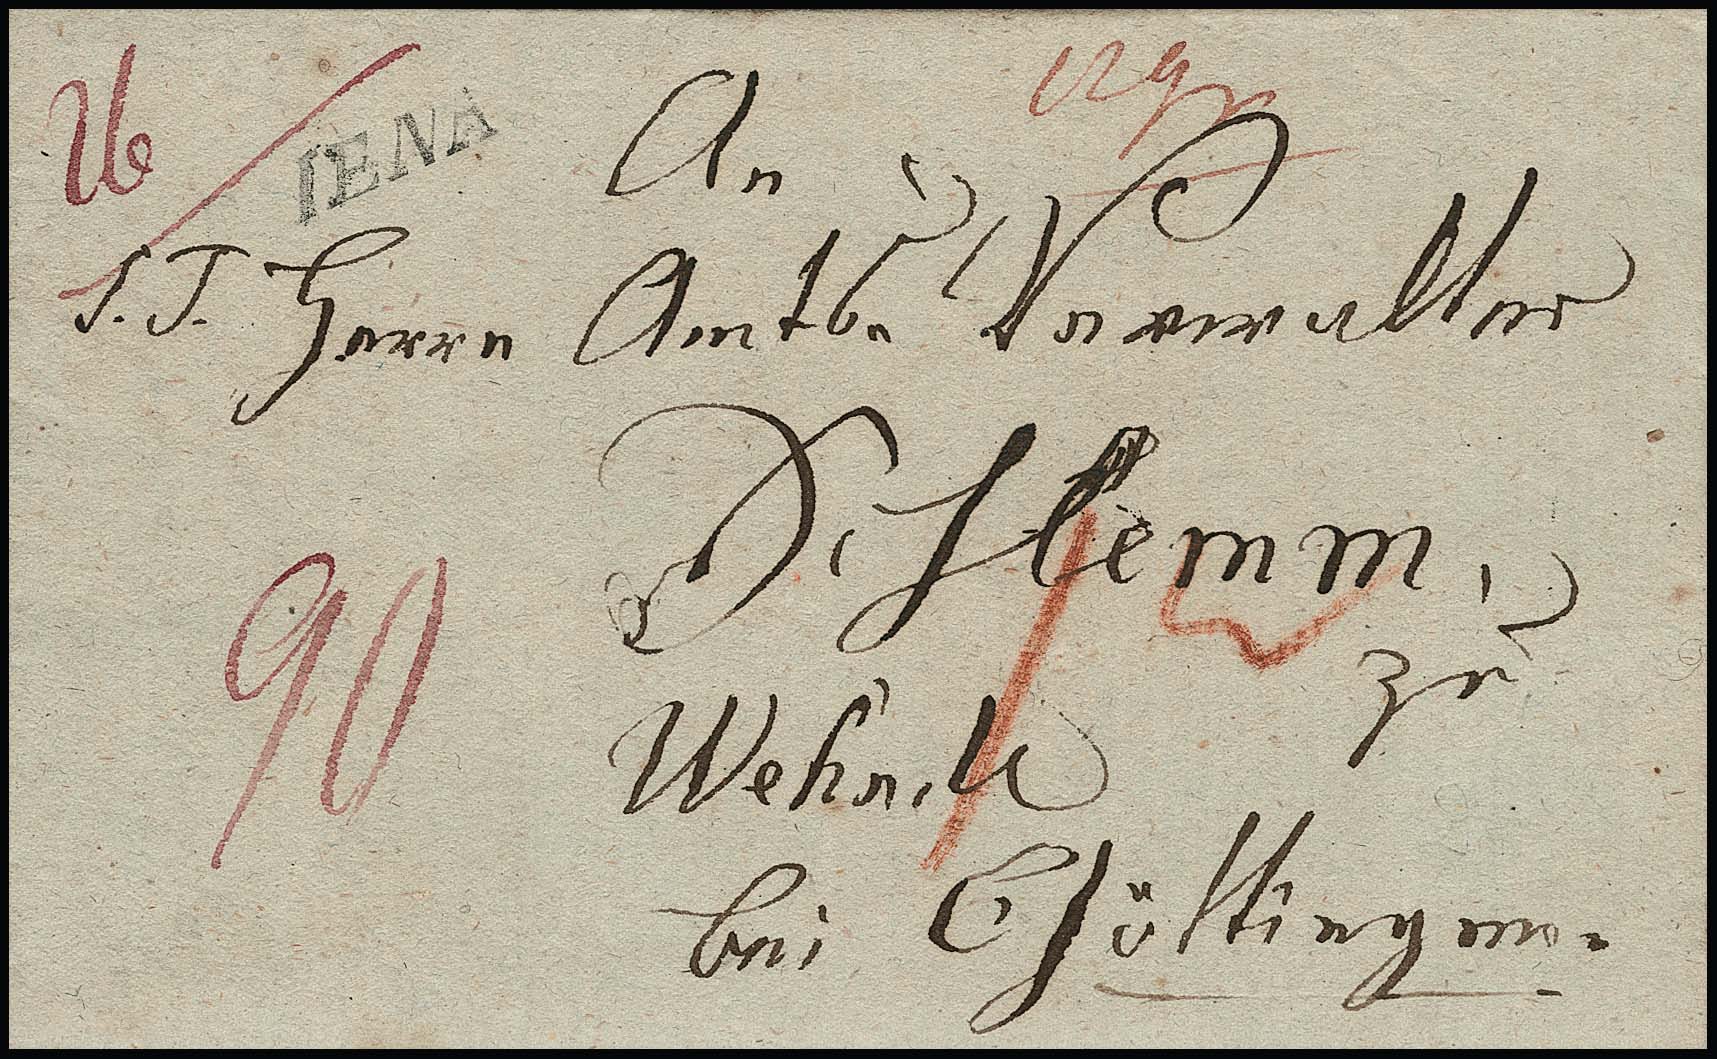 IENA
An
S. T. Herrn Amts Verwalter
Schlemm,
zu
Wehnde
bei Göttingen.
90